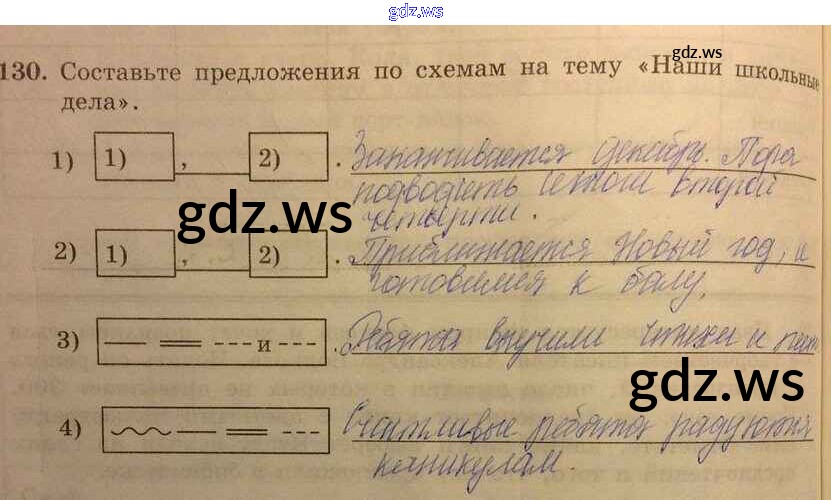 gdz.ws
gdz.ws
130. Составьте предложения по схемам на тему «Наши школьные
дела».
1) 1) , 2) . Заканчивается декабрь. Пора
подводить итоги второй
четверти.
gdz.ws
2) 1) , 2) . Приближается Новый год, и
готовимся к балу.
3) и . Ребята выучили стихи и
gdz.ws
4) Счастливые ребята радуются
каникулам.